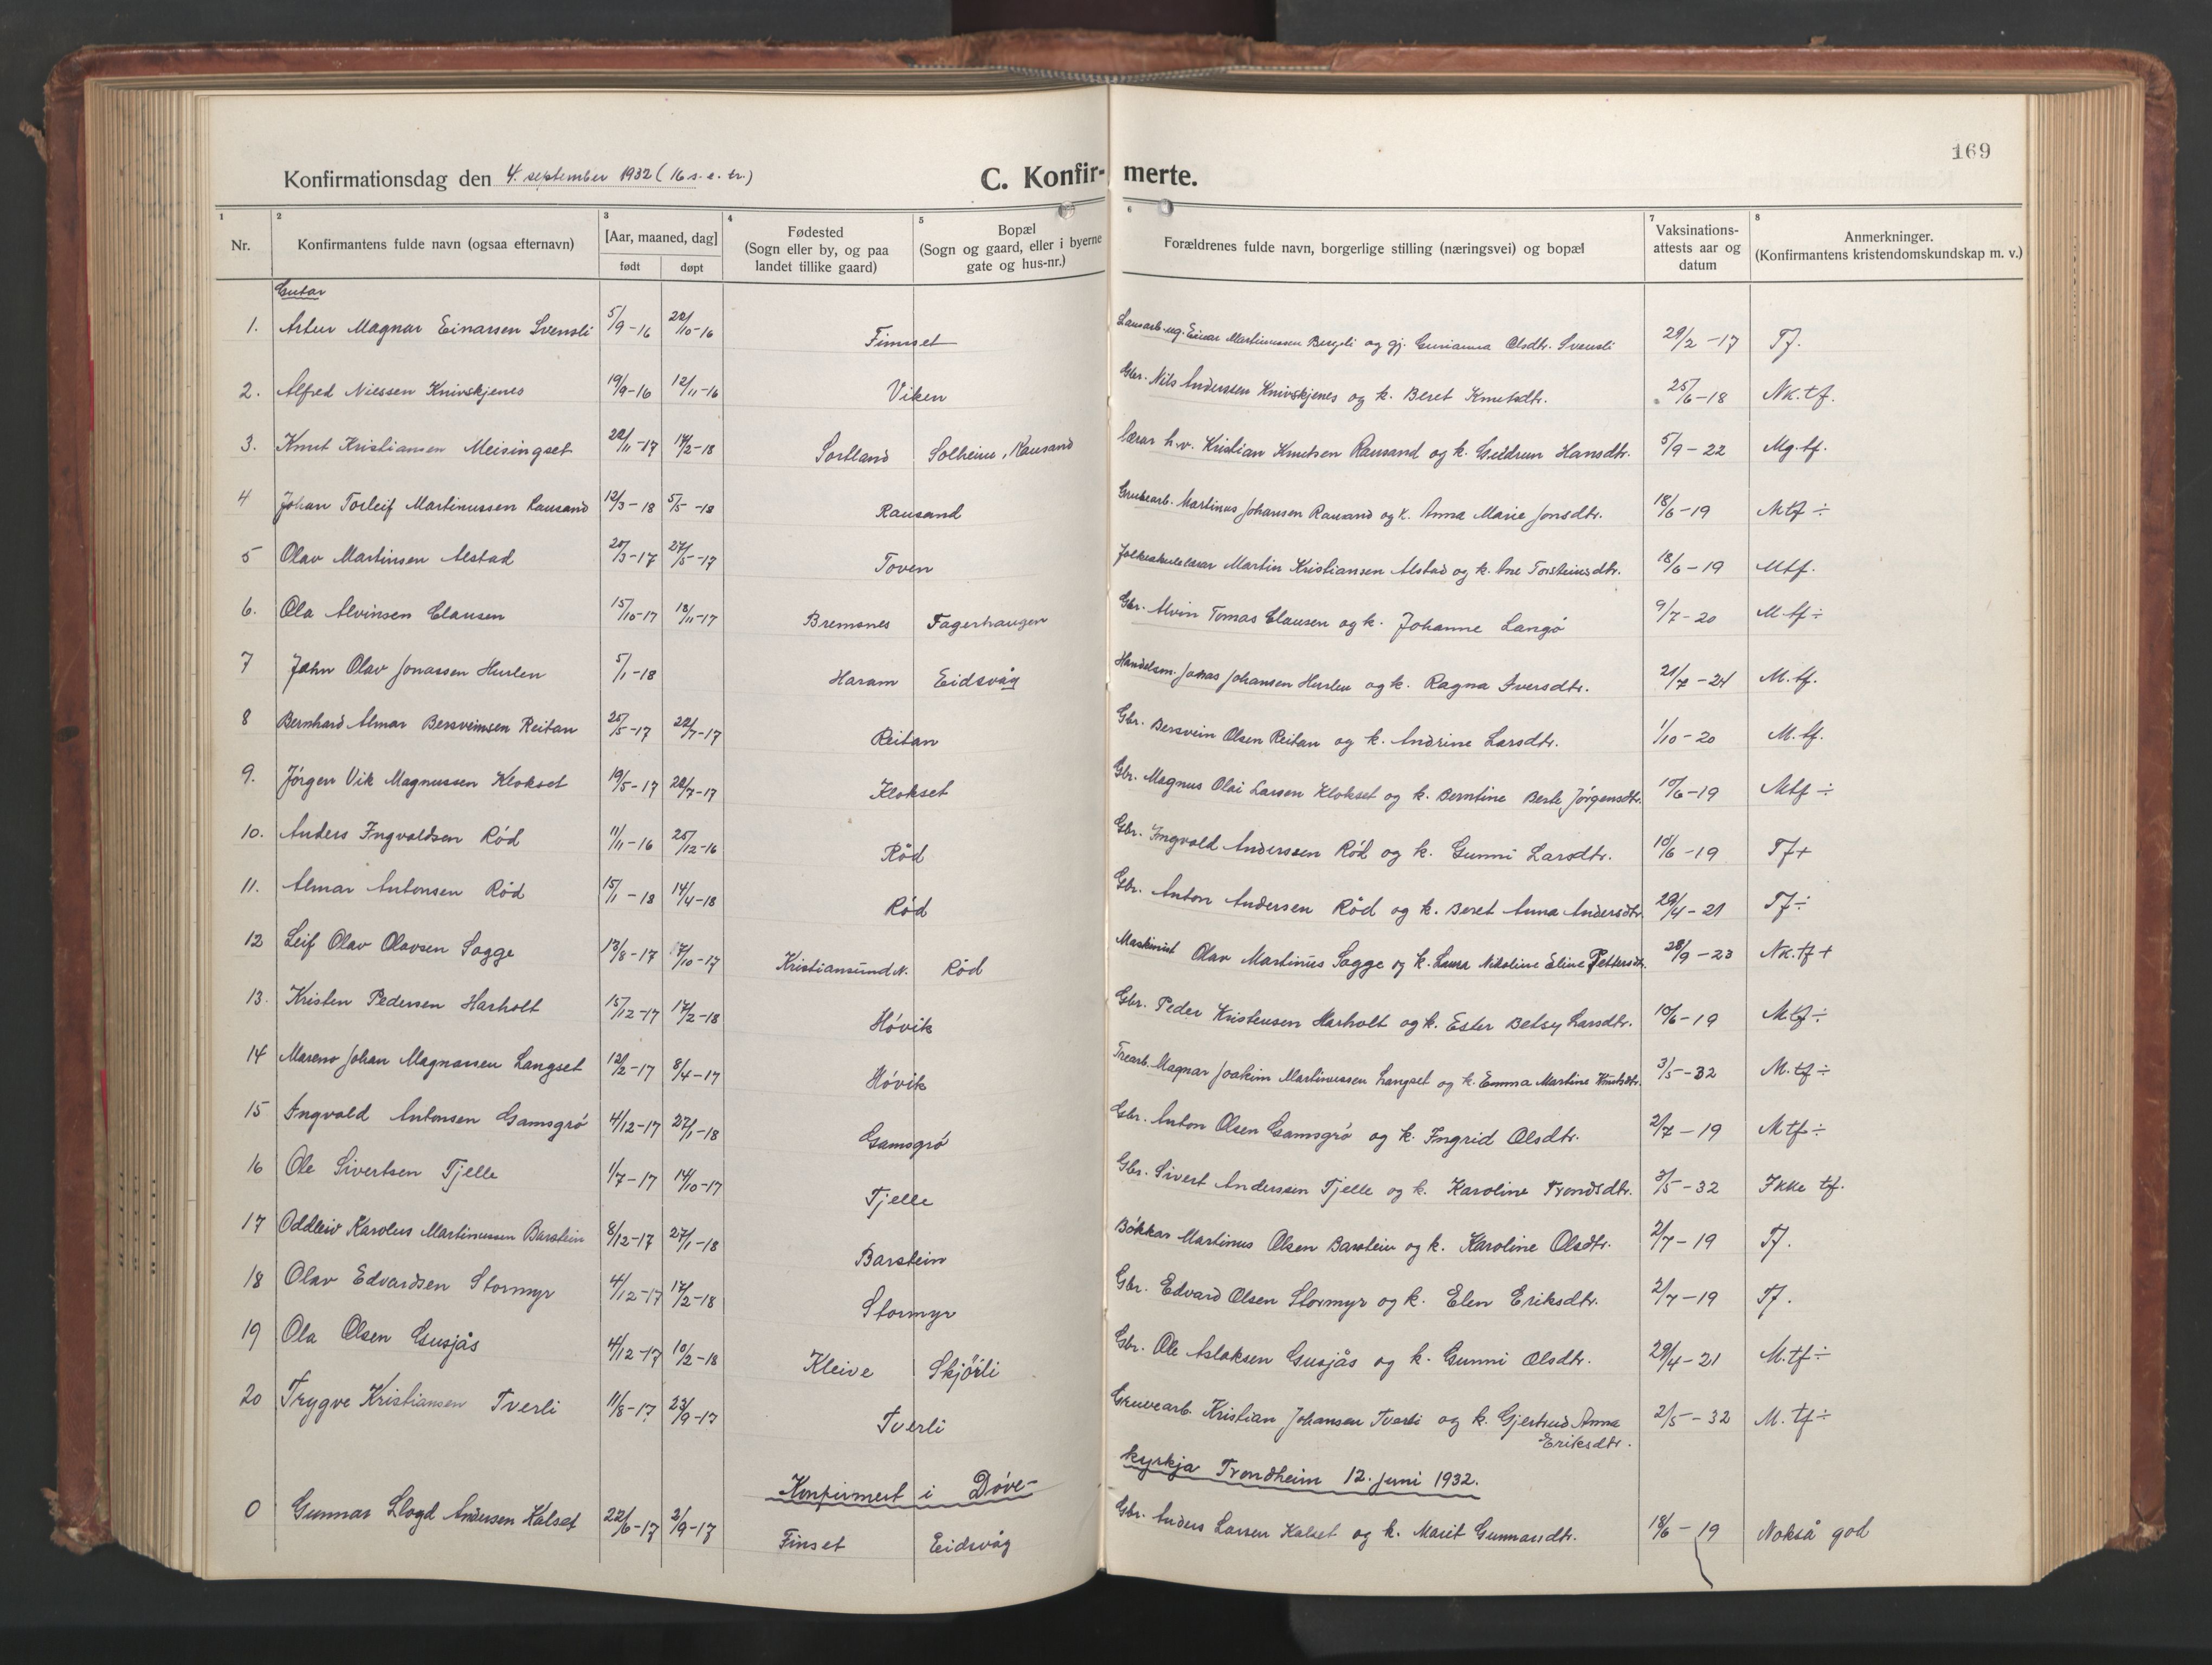 169
Konfirmationsdag den 4. september 1932 (16 s. e. tr.)
C. Konfir- merte.
1 2 3 4 5 6 7 8
Nr. Konfirmantens fulde navn (ogsaa efternavn) [Aar, maaned, dag] født døpt Fødested (Sogn eller by, og paa landet tillike gaard) Bopæl (Sogn og gaard, eller i byerne gate og hus-nr.) Forældrenes fulde navn, borgerlige stilling (næringsvei) og bopæl Vaksinations-attests aar og datum Anmerkninger. (Konfirmantens kristendomskundskap m. v.)
Gutar
1. Artur Magnar Einarsen Svensli 5/9-16 22/10-16 Finset Einar Martinussen Bergli og gj. Gurianna Olsdtr. Svensli 29/2-17 Tf.
2. Alfred Nielsen Knivskjenes 19/9-16 12/11-16 Viken Gbr. Nils Anderssen Knivskjenes og k. Beret Knutsdtr. 25/6-18 Nk. tf.
3. Knut Kristiansen Meisingset 22/11-17 17/2-18 Sortland Solheim, Rausand lærar h.v. Kristian Knutsen Rausand og k. Guldrun Hansdtr. 5/9-22 Mg. tf.
4 Johan Torleif Martinussen Rausand 12/3-18 5/5-18 Rausand Gruvearb. Martinus Johansen Rausand og k. Anna Marie Jonsdtr. 18/6-19 Mtf ÷
5 Olav Martinsen Alstad 20/3-17 27/5-17 Toven Folkeskulelærar Martin Kristiansen Alstad og k. Ane Torsteinsdtr. 18/6-19 Mtf.
6. Ola Alvinsen Clausen 15/10-17 18/11-17 Bremsnes Fagerhaugen Gbr. Alvin Tomas Clausen og k. Johanne Langö 9/7-20 M tf ÷
7 John Olav Jonassen Hurlen 5/1-18 Haram Eidsvåg Handelsm. Jonas Johansen Hurlen og k. Ragna Iversdtr. 21/7-24 M. tf.
8 Bernhard Almar Bersveinsen Reitan 25/5-17 22/7-17 Reitan Gbr. Bersvein Olsen Reitan og k. Andrine Larsdtr. 1/10-20 M. tf.
9. Jörgen Vik Magnussen Klokset 19/5-17 22/7-17 Klokset Gbr. Magnus Olai Larsen Klokset og k. Berntine Berte Jörgensdtr. 10/6-19 Mtf ÷
10. Anders Ingvaldsen Röd 11/11-16 25/12-16 Röd Gbr. Ingvald Anderssen Röd og k. Gunni Larsdtr. 10/6-19 Tf +
11. Almar Antonsen Röd 15/1-18 14/4-18 Röd Gbr. Anton Andersen Röd og k. Beret Anna Andersdtr. 29/4-21 Tf ÷
12 Leif Olav Olavsen Sagge 13/8-17 7/10-17 Kristiansund N. Röd Maskinist Olav Martinus Sagge og k. Laura Nikoline Eline Pettersdtr. 28/9-23 Nk. tf +
13. Kristen Pedersen Harholt 15/12-17 17/2-18 Hövik Gbr. Peder Kristensen Harholt og k. Ester Betsy Larsdtr. 10/6-19 M. tf ÷
14 Mareno Johan Magnarsen Langset 12/2-17 8/4-17 Hövik Trearb. Magnar Joakim Martinussen Langset og k. Emma Martine Knutsdtr. 3/5-32 M. tf ÷
15 Ingvald Antonsen Gamsgrö 4/12-17 27/1-18 Gamsgrö Gbr. Anton Olsen Gamsgrö og k. Ingrid Olsdtr. 2/7-19 M tf ÷
16 Ole Sivertsen Tjelle 1/7-17 14/10-17 Tjelle Gbr. Sivert Anderssen Tjelle og k. Karoline Trondsdtr. 3/5-32 Ikke tf.
17 Oddleiv Karolus Martinussen Barstein 8/12-17 27/1-18 Barstein Bökkar Martinus Olsen Barstein og k. Karoline Olsdtr. 2/7-19 Tf.
18 Olav Edvardsen Stormyr 4/12-17 17/2-18 Stormyr Gbr. Edvard Olsen Stormyr og k. Elen Eriksdtr. 2/7-19 Tf.
19 Ola Olsen Gusjås 4/12-17 10/2-18 Kleive Skjörli Gbr. Ole Aslaksen Gusjås og k. Gunni Olsdtr. 29/4-21 M. tf ÷
20 Trygve Kristiansen Tverli 11/8-17 23/9-17 Tverli Gruvearb. Kristian Johansen Tverli og k. Gjertrud Anna Eriksdtr. 2/5-32 M. tf ÷
Konfirmert i Döve- kyrkja Trondheim 12. juni 1932.
0 Gunnar Llogd Andersen Kalset 22/6-17 2/9-17 Finset Eidsvåg Gbr. Anders Larsen Kalset og k. Marit Gunnarsdtr. 18/6-19 Nokså god